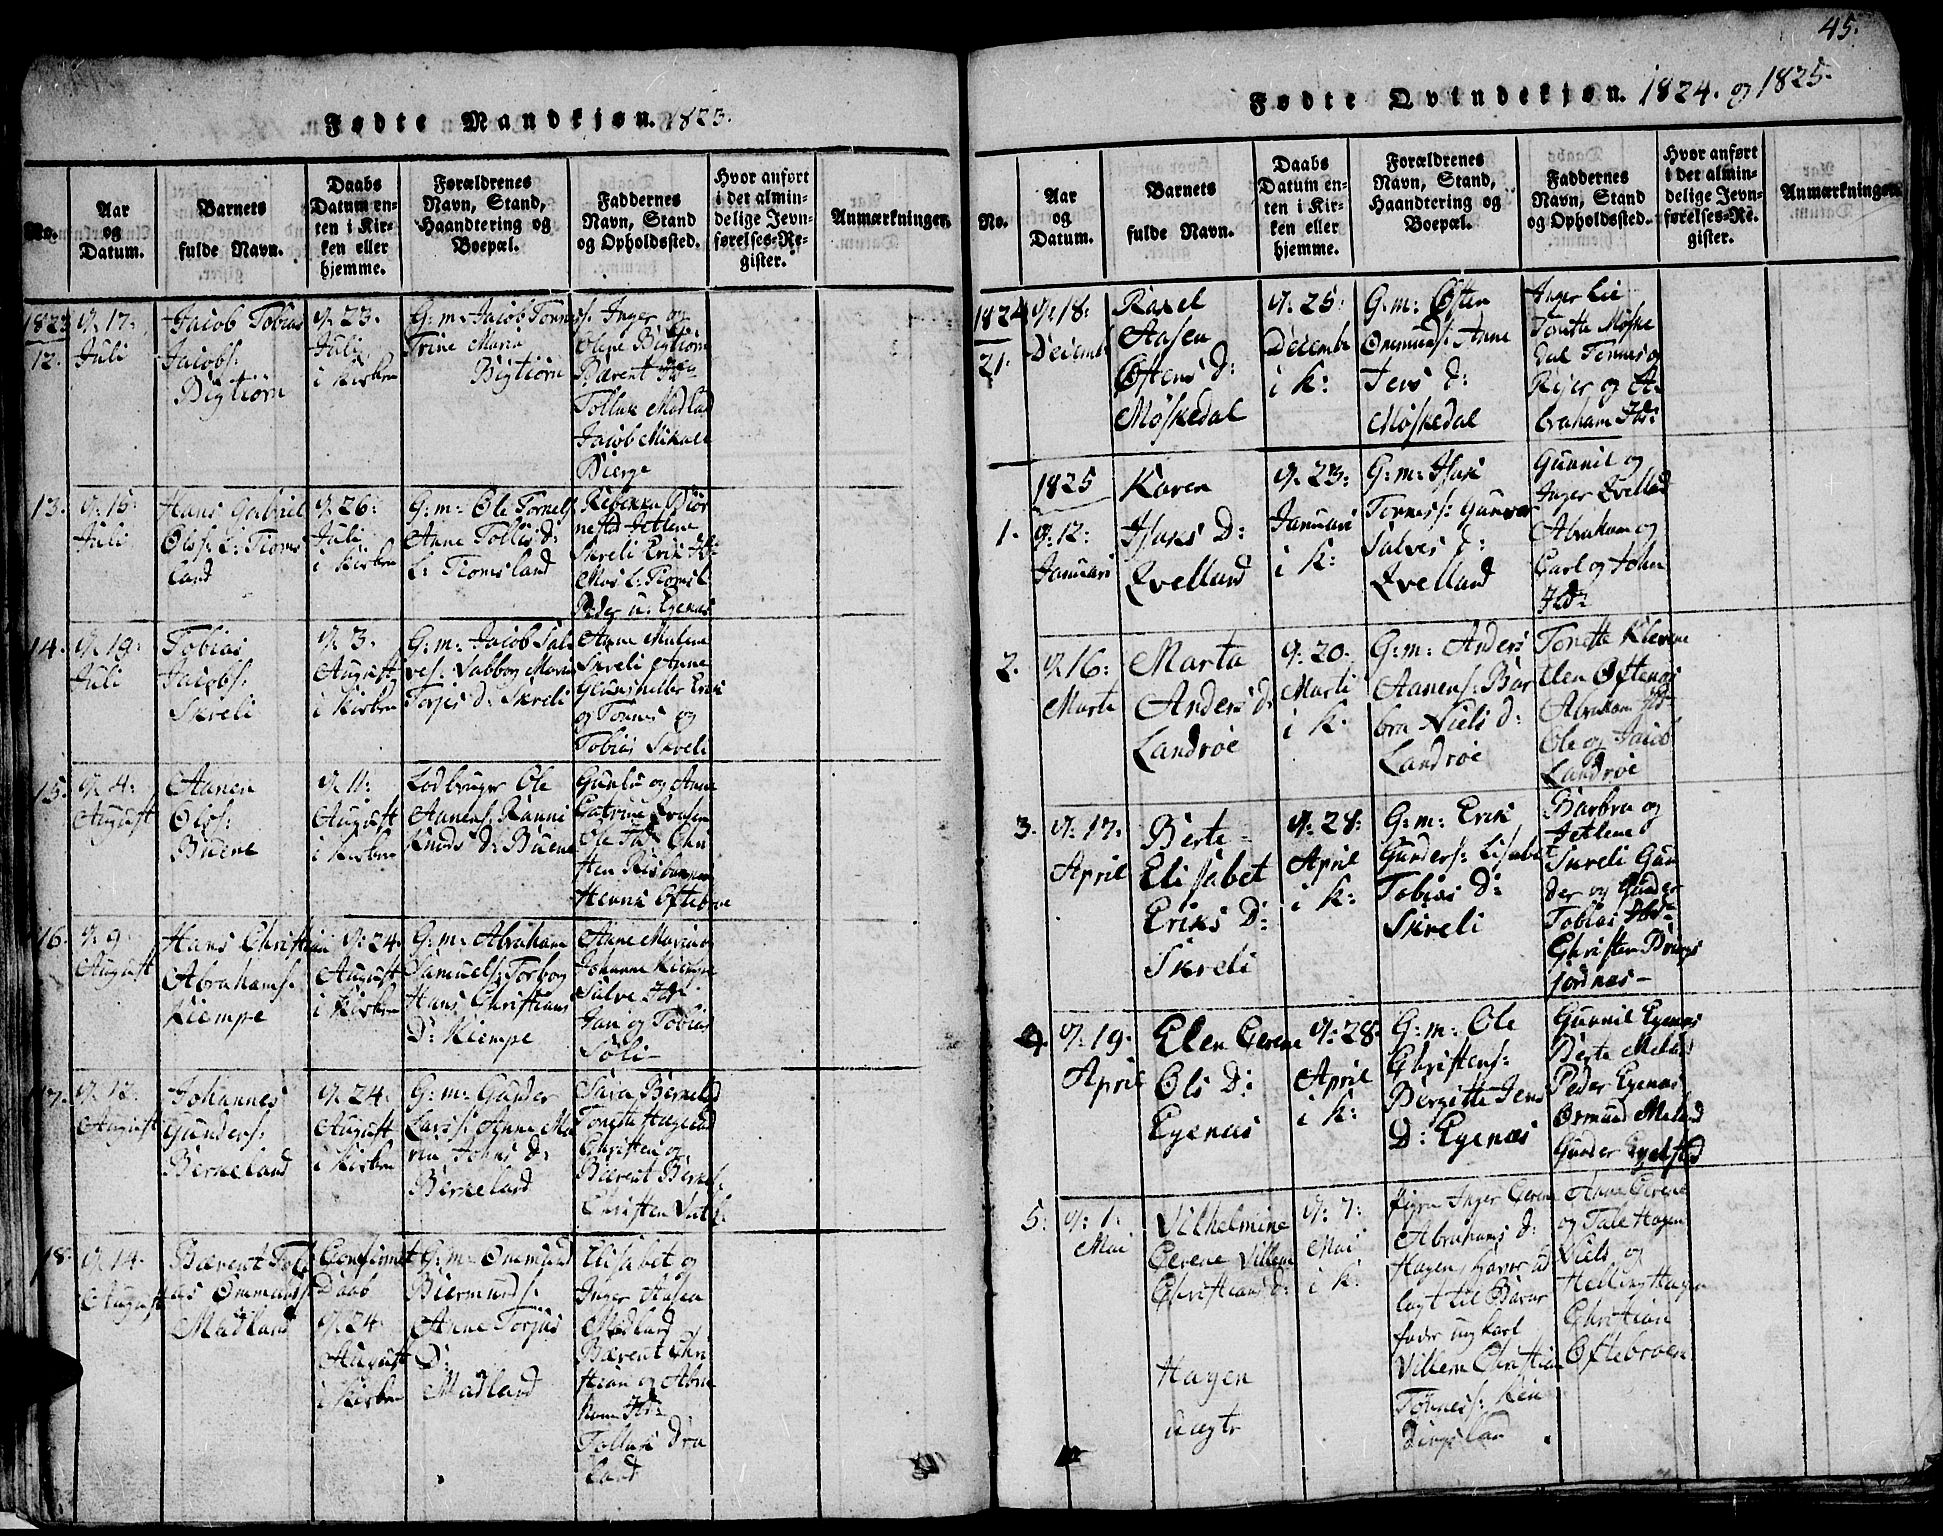 45.
Fødte Mandkjøn. 1823.
No.
Aar
og
Datum.
Barnets
fulde Navn.
Daabs
Datum en-
ten i Kir-
ken eller
hjemme.
Forældrenes
Navn, Stand,
Haandtering og
Boepæl.
Faddernes
Navn, Stand
og Opholdssted.
Hvor anført
i det almin-
delige Jevn-
førelses-Re-
gister.
Anmærkninger.
1823
12.
d: 17:
Juli
Jacob Tobias
Jacobs:
Bigtiörn
d: 23.
Juli
i Kirken
G: m: Jacob Tønnes:
Trine Maria
Bigtiörn
Inger og
Olene Bigtiörn
Bærent Ibd:
Tollak Madland
Jacob Mikael
Bierge
13.
d: 15:
Juli
Hans Gabriel
Ols: L: Tioms
land
d: 26:
Juli
i Kirken
G: m: Ole Tornels:
Anne Tollis D:
L: Tiomsland
Rebekka Biör
nestad Jetlene
Skreli Erik Ibd:
Mos L: Tiomsl:
Peder u: Egenæs
14.
d: 19:
Juli
Tobias
Jacobs:
Skreli
d: 3:
August
i Kirken
G: m: Jacob Sal
ves: Vabbog Maria
Torjes D: Skreli
Anne Malene
Skreli Anne
Erik
og Tønnes og
Tobias Skreli
15.
d: 4:
August
Aanen
Ols:
Buene
d: 11:
August
i Kirken
Lodbruger Ole
Aanens: Ranni
Knuds D: Buene
Gunlo og Anne
Catrine
Ole Ibd: Chri
sten Risbu
Henrik Oftebroe
16.
d: 9:
August
Hans Christian
Abrahams:
Kiempe
d: 24.
August
i Kirken
G: m: Abraham
Samuels: Torbor
Hans Christians
D: Kiempe
Anne Maria og
Johanne Kiempe
Salve Ibd:
Jan og Tobias
Söli
17.
d: 12:
August
Johannes
Gunders:
Birkeland
d: 24.
August
i Kirken
G: m: Gunder
Lars: Anne Ma
ria Johns D:
Birkeland
Sara Berkeld
Tonette Hægeland
Christen og
Bærent Berkel:
Christen
18.
d: 14.
August
Bærent Tobi
as Ommunds:
Madland
Confirmet
Daab
d: 24.
August
i Kirken
G: m: Ommund
Biermunds:
Anne Torjus
D:
Madland
Elisabet og
Inger Aasen
Madland
Bærent Chri
stian og Abra
ham Ibd:
Tollak Dra
land
Fødte Qvindekjøn. 1824. og 1825.
No.
Aar
og
Datum.
Barnets
fulde Navn.
Daabs
Datum en-
ten i Kir-
ken eller
hjemme.
Forældrenes
Navn, Stand,
Haandtering og
Boepæl.
Faddernes
Navn, Stand
og Opholdssted.
Hvor anført
i det almin-
delige Jevn-
førelses-Re-
gister.
Anmærkninger.
1824
21.
d: 18:
Decemb:
Rakel
Aasen
Østens D:
Møskedal
d: 25:
Decembe
i K:
G: m: Østen
Ommunds: Anne
Jens D:
Møskedal
Inger Lie
Tonette Møske
dal Tønnes og
Rejer og A
braham Ibd:
1825
1.
d: 12:
Januari
Karen
Isaks D:
Qvelland
d: 23:
Januari
i K:
G: m: Isak
Tønness: Gunvor
Salves D:
Qvelland
Gunnil og
Inger Qvelland
Abraham og
Carl og John
Ibd:
2.
d: 16:
Marti
Marta
Anders D:
Landrøe
d: 20.
Marti
i K:
G: m: Anders
Aanens: Bar
bra Niels D:
Landrøe
Tonette Klevene
Elen Øftenæs
Abraham Ibd:
Ole og Jacob
Landrøe
3.
d: 17:
April
Berte
Elisabet
Eriks D:
Skreli
d: 28:
April
i K:
G: m: Erik
Gunders: Lisabet
Tobias D:
Skreli
Barbra og
Jetlene
Skreli Gun
der og Gunder
Tobias Ibd:
Christen Drangs
jordnes
4.
d: 19.
April
Elen Gerene
Ols D:
Egenæs
d: 28.
April
i K:
G: m: Ole
Christens:
Bergitte Jens
D: Egenæs
Gunnil Egenæs
Berte Meland
Peder Egenæs
Ormund Meland
Gunder Egelstad
5:
d: 1.
Mai
Vilhelmine
Gerene Villem
Christians D:
Hagen
uægte
d: 7:
Mai
i K:
Pigen Inger Gerene
Abrahams D:
Hagen, haver ud
lagt til Barne
fader ungkarl
Villem Christian
Tønness: Ken
dingsland
Anne Gerene
og Tale Hagen
Niels og
Helling Hagen
Christian
Øftebroen